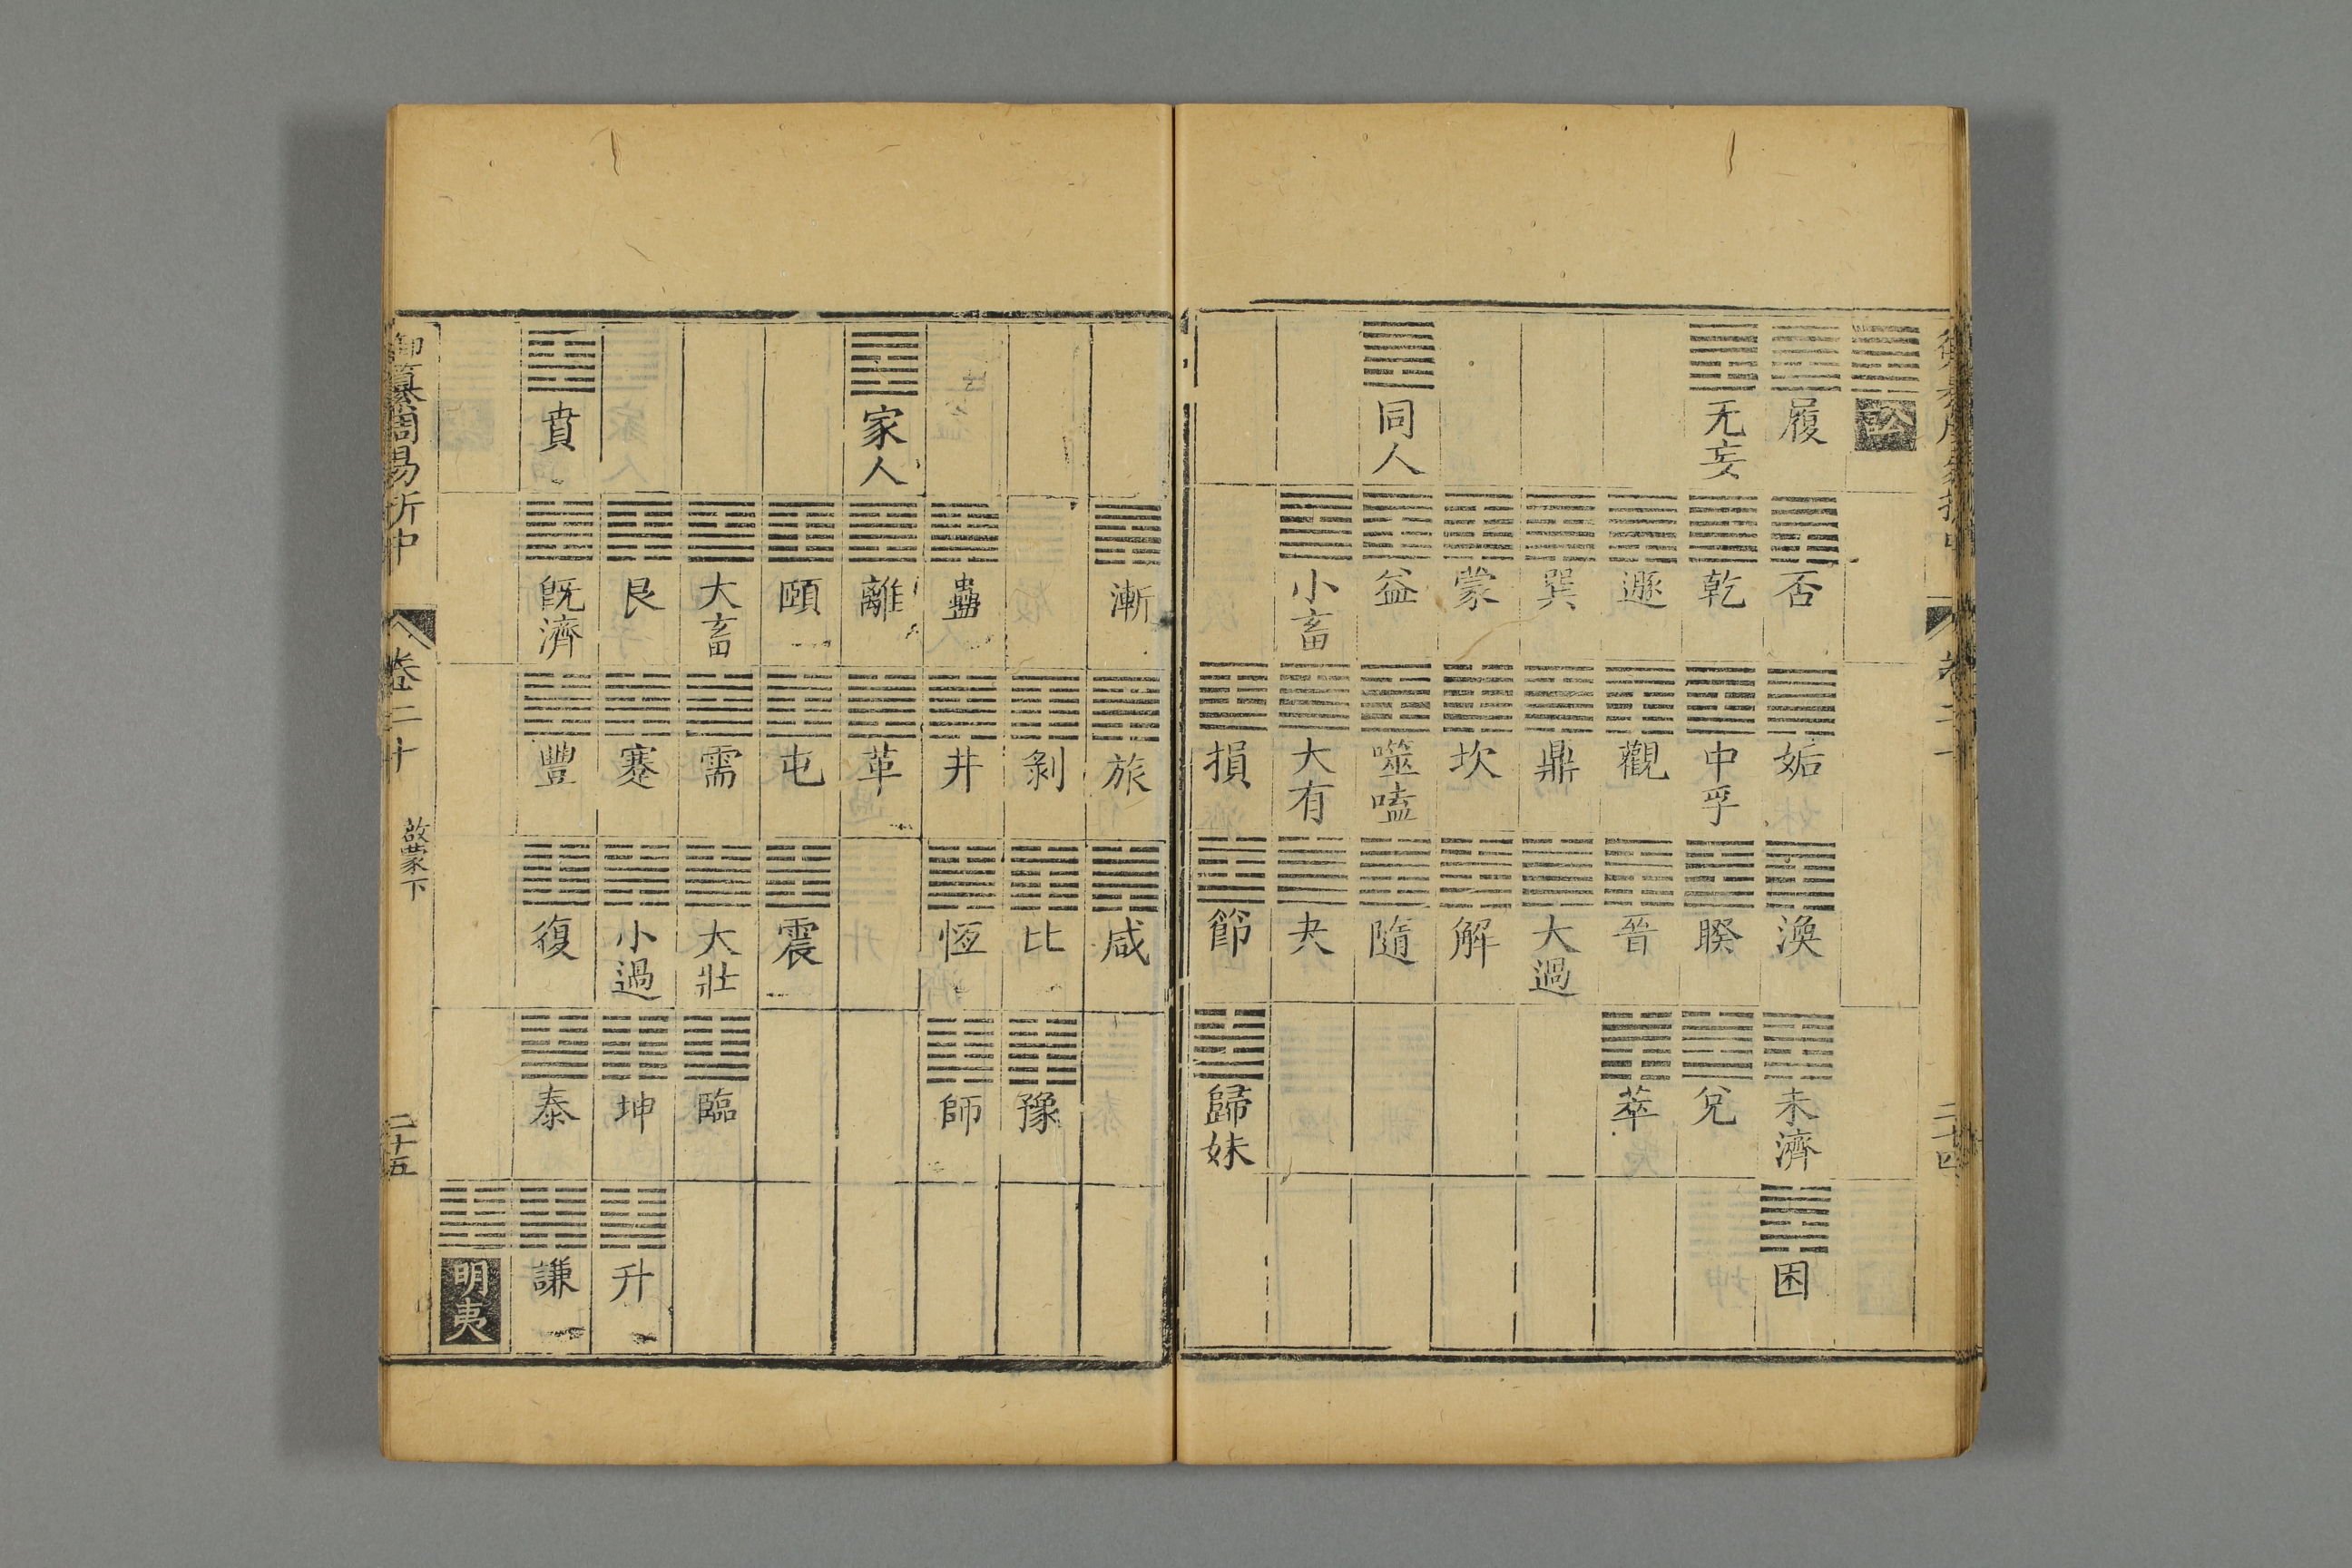 訟
履
否
姤
渙
未濟
困
无妄
乾
中孚
睽
兌
遯
觀
晉
萃
巽
鼎
大過
蒙
坎
解
同人
益
噬嗑
隨
小畜
大有
夬
損
節
歸妹
漸
旅
咸
剝
比
豫
蠱
井
恆
師
家人
離
革
頤
屯
震
大畜
需
大壯
臨
艮
蹇
小過
坤
升
賁
旣濟
豐
復
泰
謙
明夷
御纂周易折中 卷二十 啟蒙下 二十五